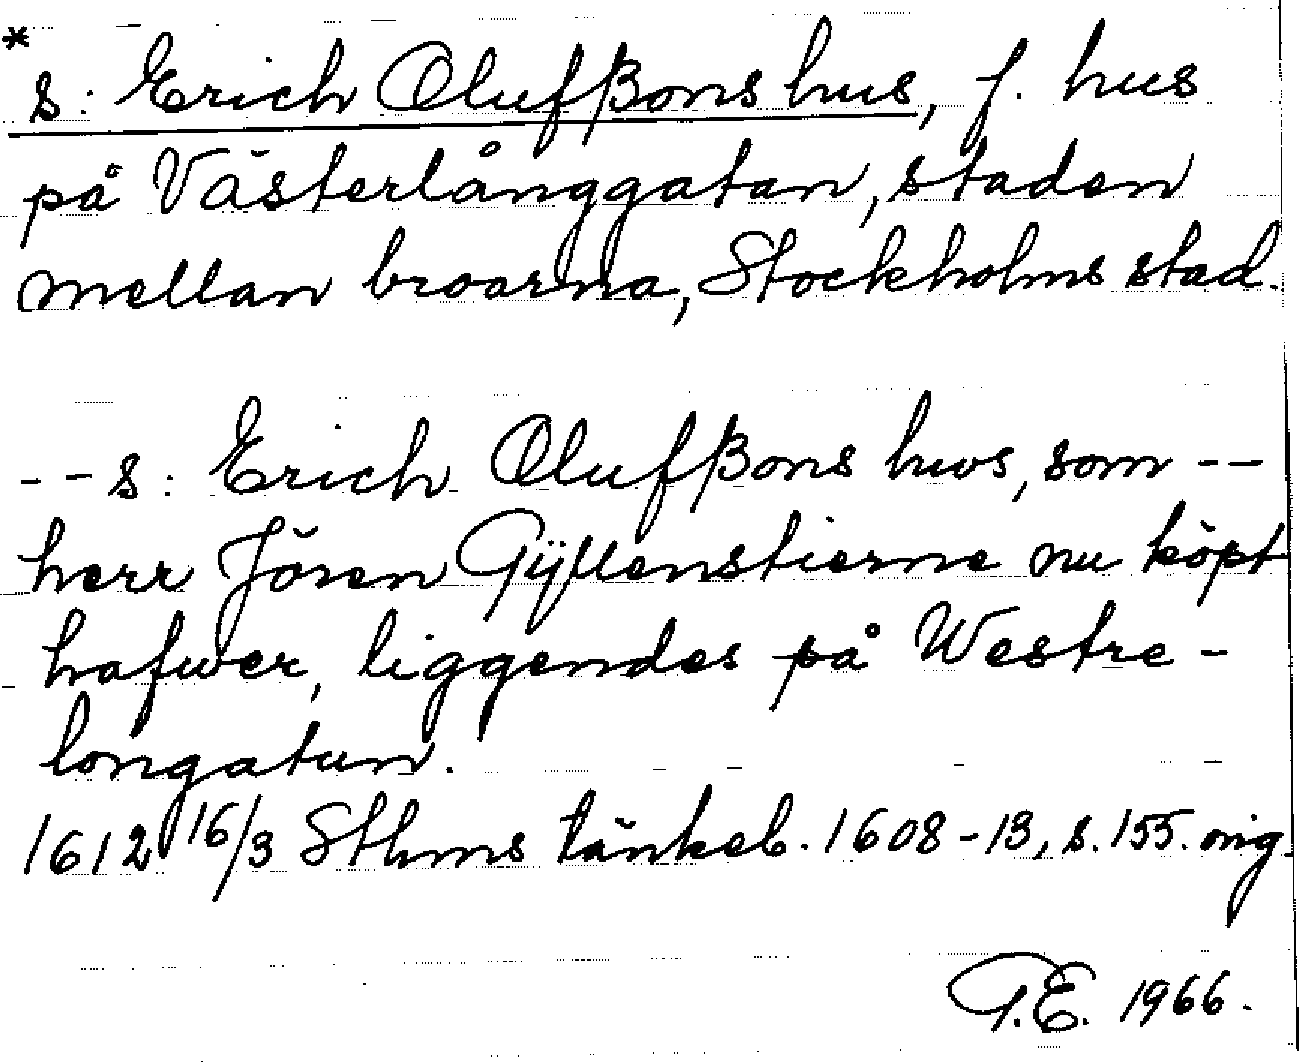 * s: Erich Olufßons hus, f. hus
på Västerlånggatan, staden
mellan broarna, Stockholms stad.
-- s: Erich Olufßons hws, som --
herr Jören Gÿllenstierne nu köpt
hafwer, liggendes på Westre-
longatun.
1612 16/3 Sthms tänkeb. 1608-13, s. 155. orig.
G.E. 1966.